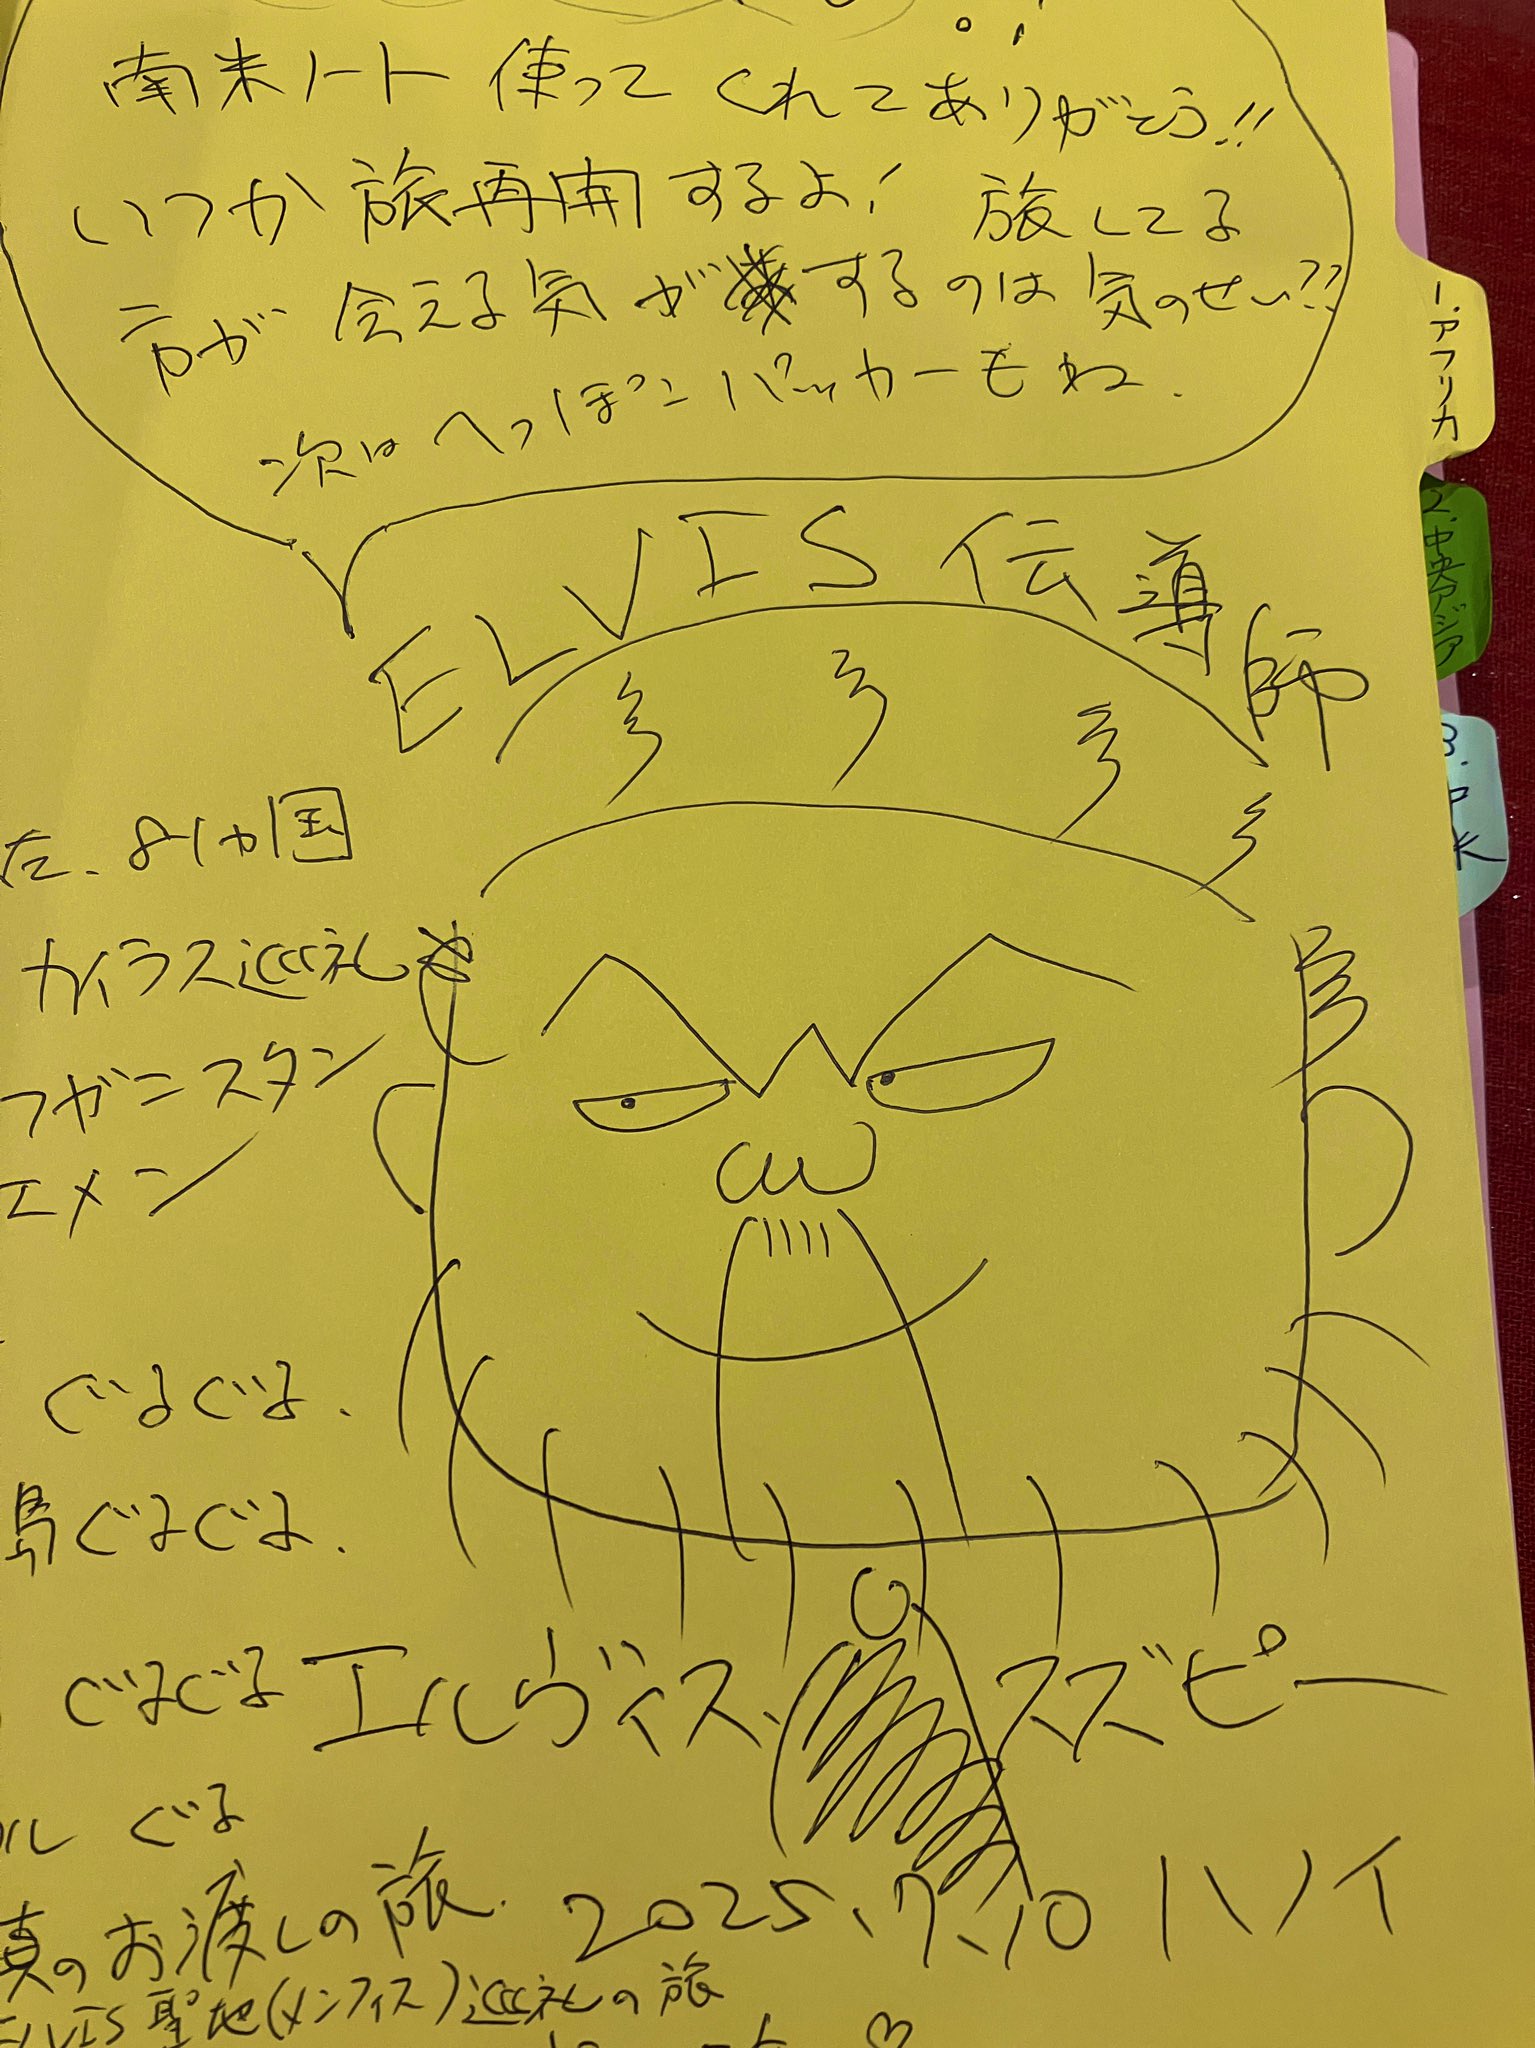 南米ノート 使って くれてありがとう!!
いつか 旅再開するよ! 旅してる
方が 会える気がするのは気のせい??
次は へっぽこ バッカーもね.
ELVIS 伝導師
た、81カ国
カイラス巡礼
フガニスタン
エメン
ぐるぐる.
島ぐるぐる.
ぐるぐる
エルヴィス、スズピー
ル ぐる
真のお渡しの旅.
2025、7、10 ハノイ
ELVIS 聖地(メンフィス)巡礼の旅
1.アフリカ
2.中央アジア
3.